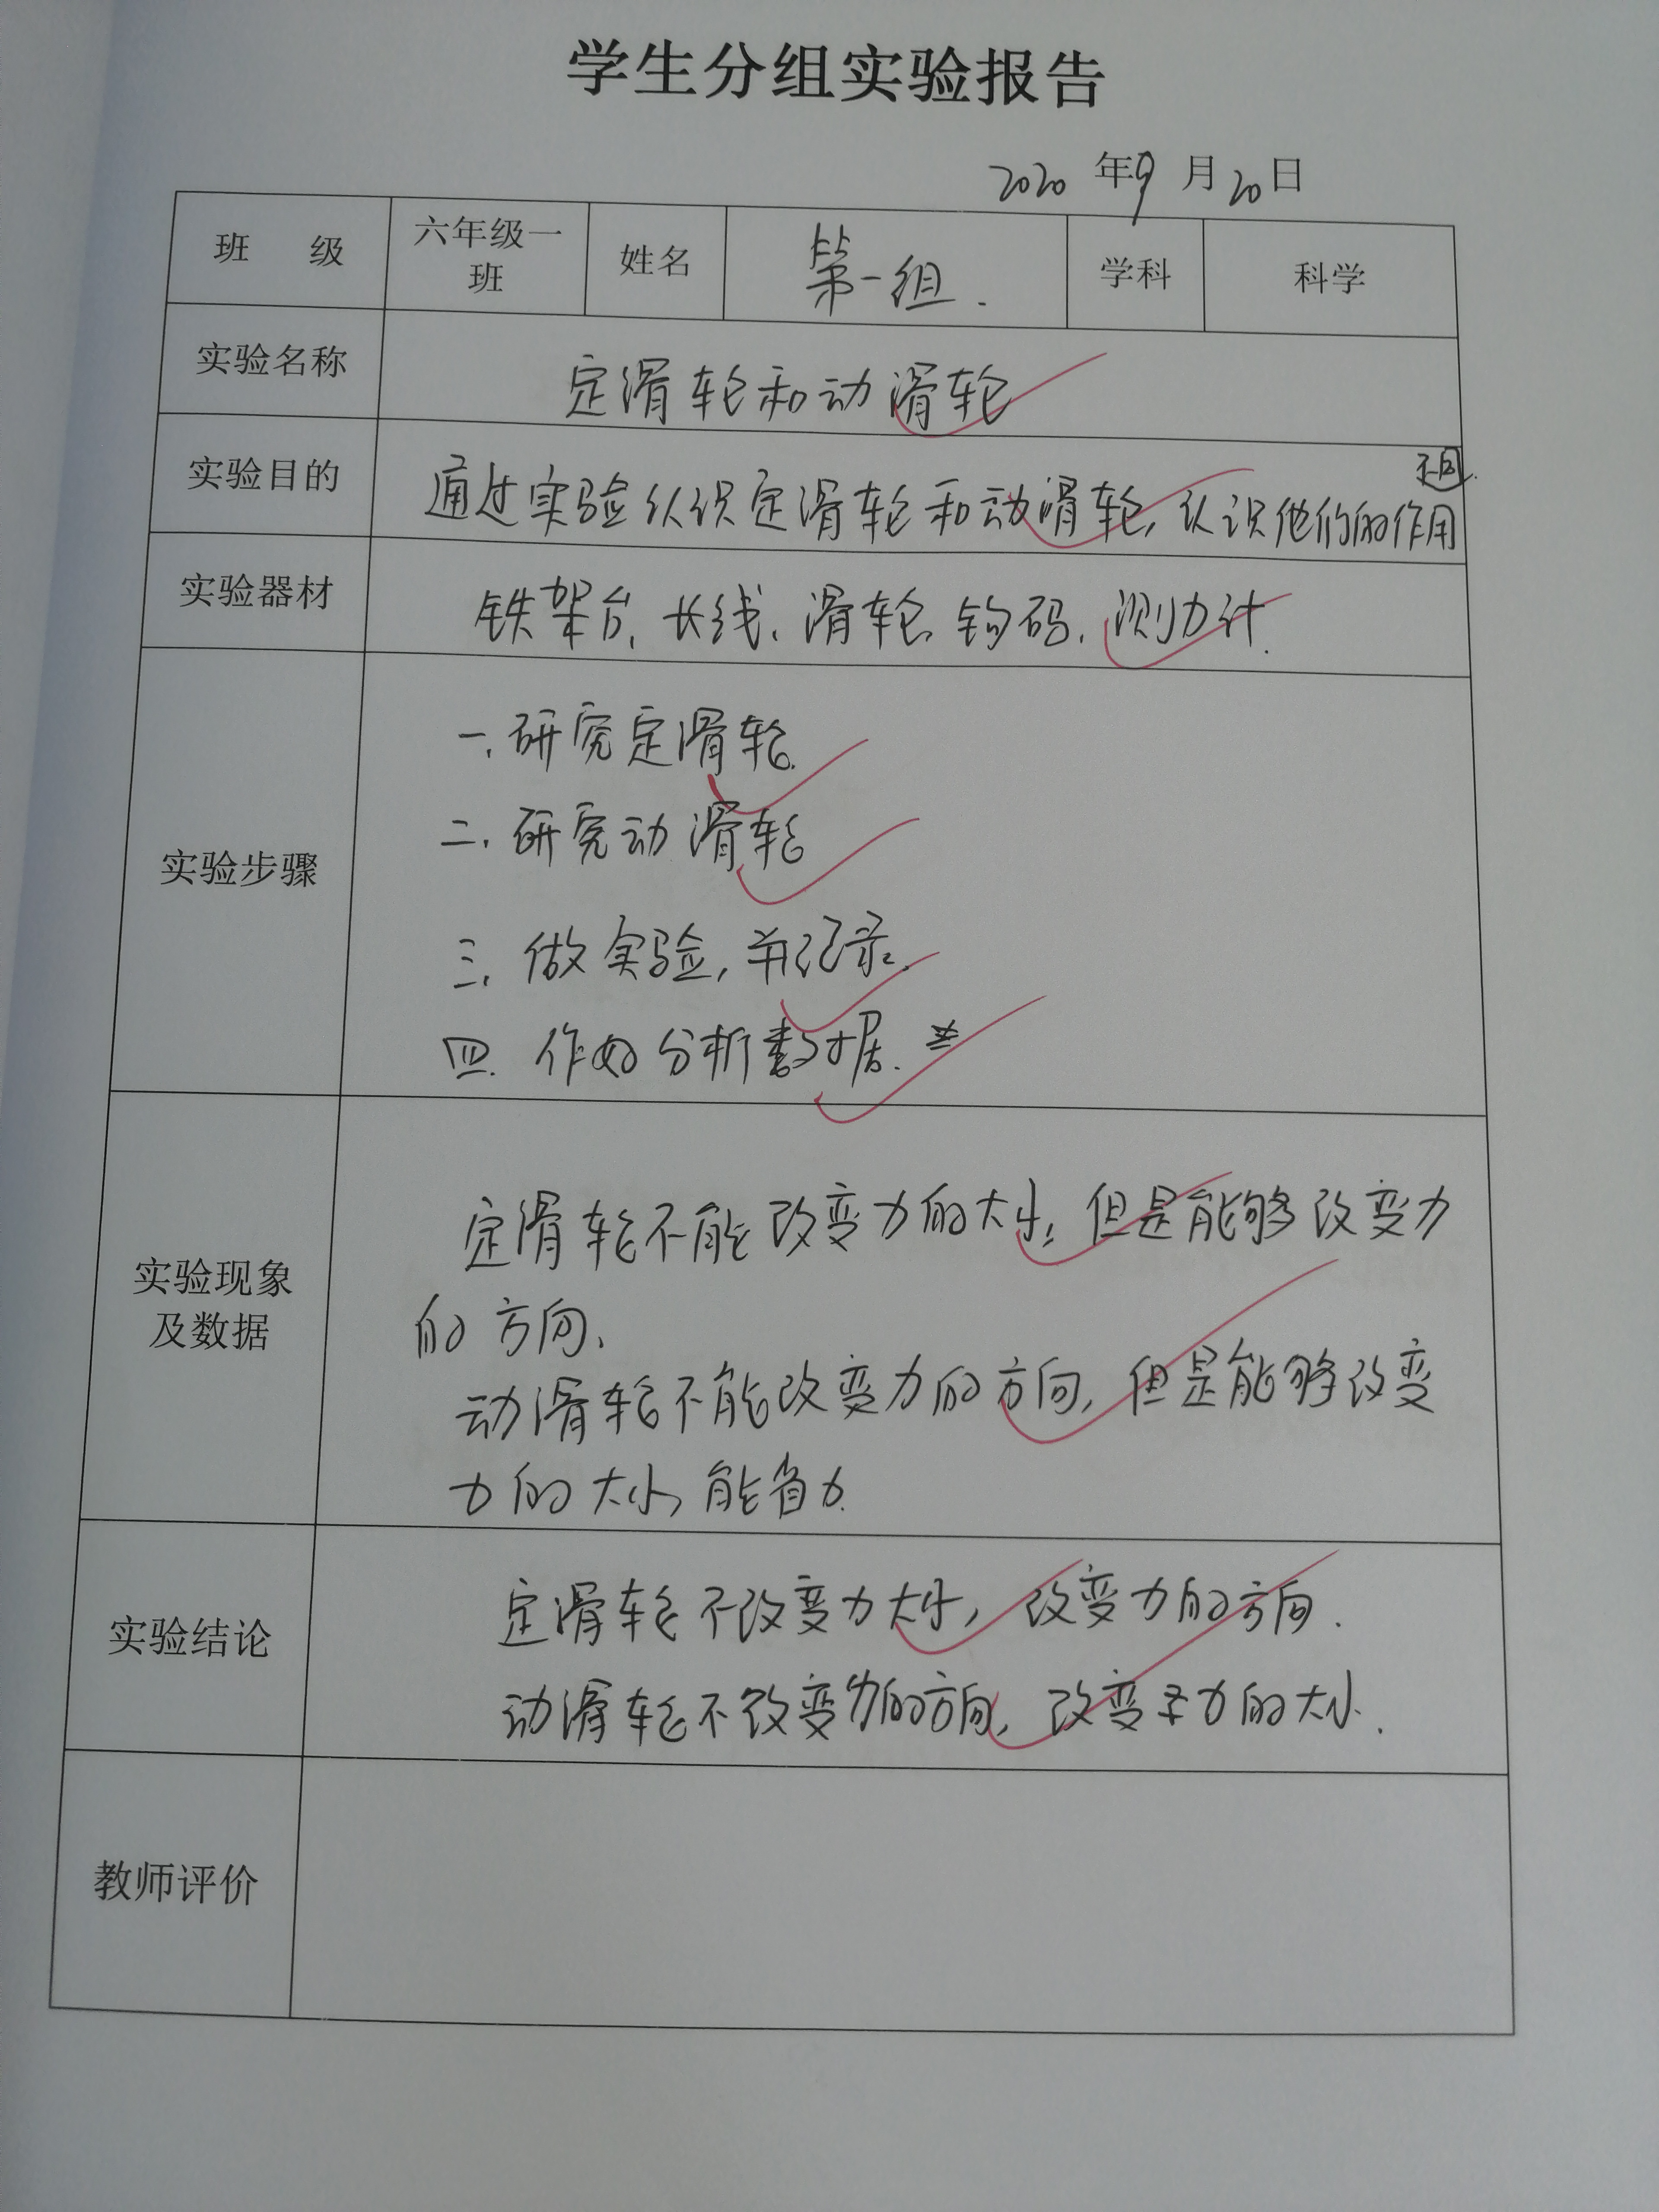 学生分组实验报告
2020 年 9 月 20 日
班 级 六年级一班 姓名 第一组. 学科 科学
实验名称 定滑轮和动滑轮
不同.
实验目的 通过实验认识定滑轮和动滑轮,认识他们的作用
实验器材 铁架台、长线、滑轮、钩码、测力计.
实验步骤
一.研究定滑轮.
二.研究动滑轮
三.做实验,并记录.
四.作好分析数据.
实验现象
及数据
定滑轮不能改变力的大小,但是能够改变力
的方向、
动滑轮不能改变力的方向,但是能够改变
力的大小,能省力.
实验结论
定滑轮不改变力大小,改变力的方向.
动滑轮不改变力的方向,改变力的大小.
教师评价